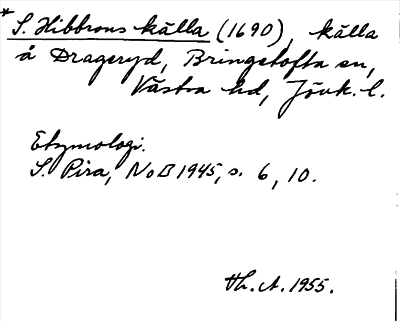 * S. Hibbrons källa (1690), källa
å Drageryd, Bringetofta sn,
Västra hd, Jönk. l.
Etymologi.
S. Pira, NoB 1945, s. 6, 10.
Th. A. 1955.